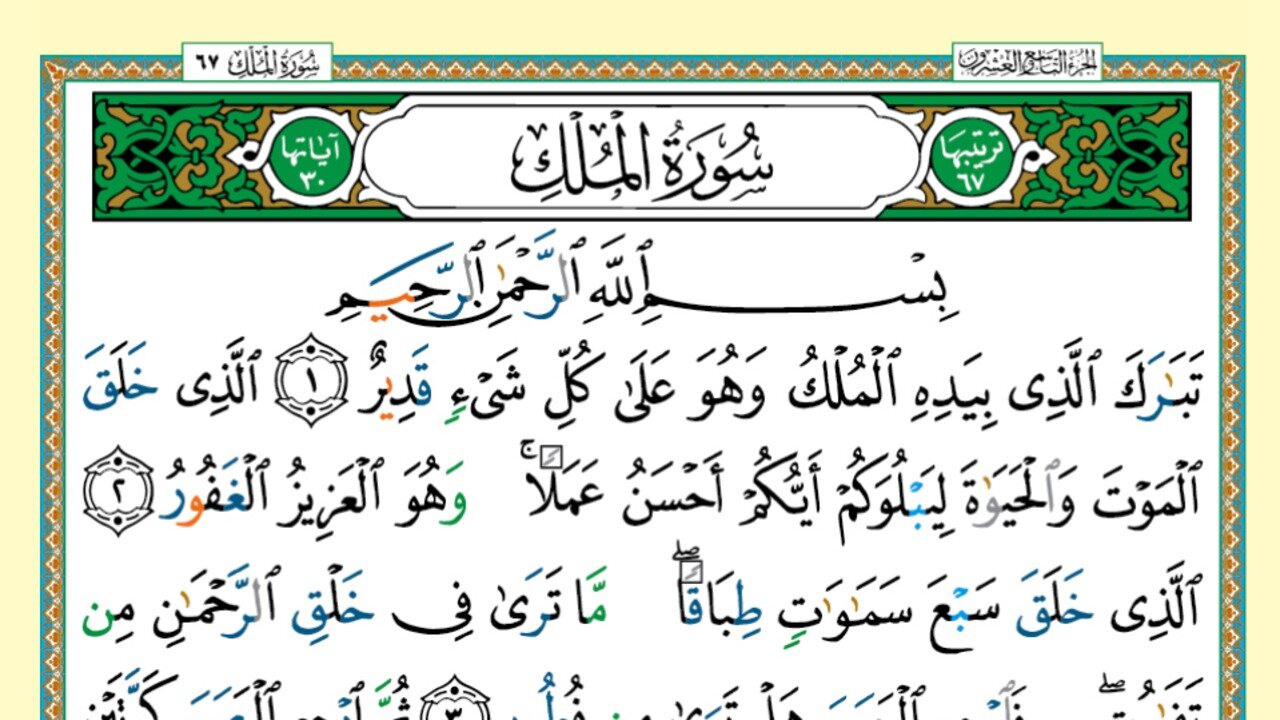 الجزء التاسع والعشرون
سُورَةُ الْمُلْكِ ٦٧
ترتيبها ٦٧
سُورَةُ الْمُلْكِ
آياتها ٣٠
بِسْمِ ٱللَّهِ ٱلرَّحْمَٰنِ ٱلرَّحِيمِ
تَبَـٰرَكَ ٱلَّذِى بِيَدِهِ ٱلْمُلْكُ وَهُوَ عَلَىٰ كُلِّ شَىْءٍ قَدِيرٌ ١ ٱلَّذِى خَلَقَ
ٱلْمَوْتَ وَٱلْحَيَوٰةَ لِيَبْلُوَكُمْ أَيُّكُمْ أَحْسَنُ عَمَلًا ۚ وَهُوَ ٱلْعَزِيزُ ٱلْغَفُورُ ٢
ٱلَّذِى خَلَقَ سَبْعَ سَمَـٰوَٰتٍ طِبَاقًا ۖ مَّا تَرَىٰ فِى خَلْقِ ٱلرَّحْمَـٰنِ مِن